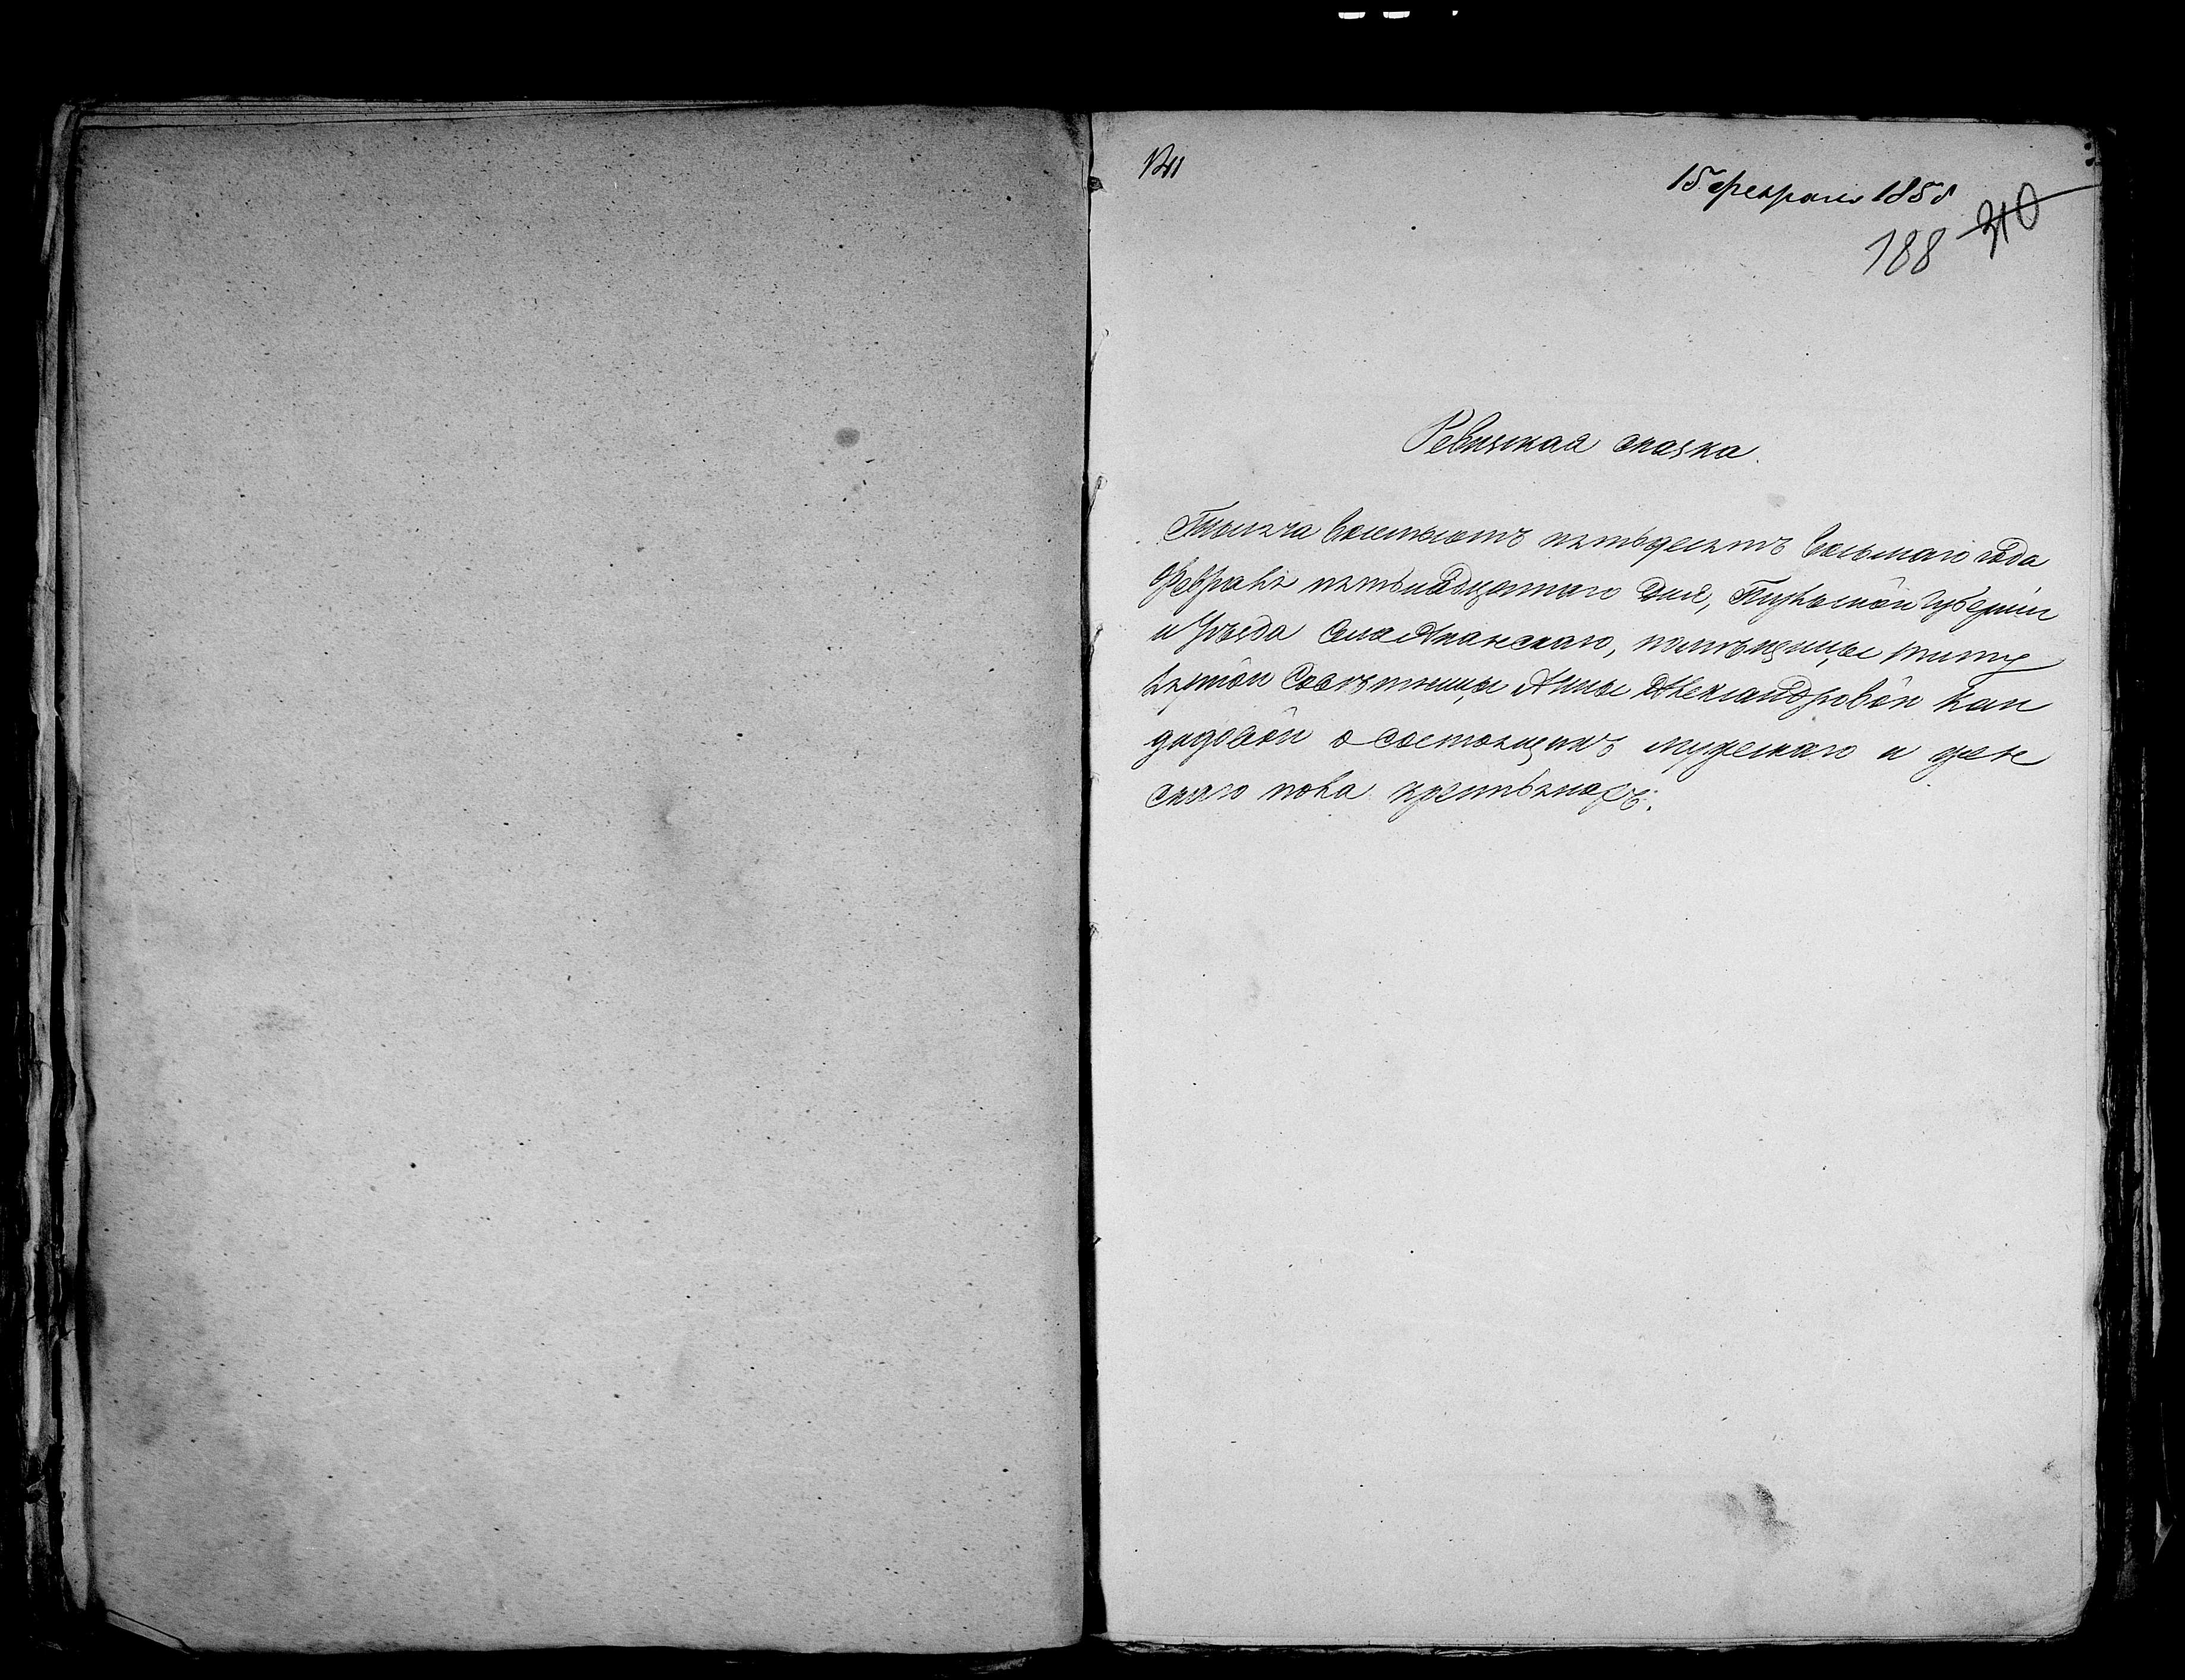 15 февраля 1858
210
188
Ревизская сказка.
Тысяча Восемьсотъ пятьдесятъ Восьмаго года
Февраля пятьнадцатаго дня, Тульской Губерніи
и Уѣзда Села Ананскаго, помѣщицы титу
лярной Совѣтницы Анны Александровой Кан
дидовой о состоящихъ мужескаго и жен
скаго пола крестьянахъ.